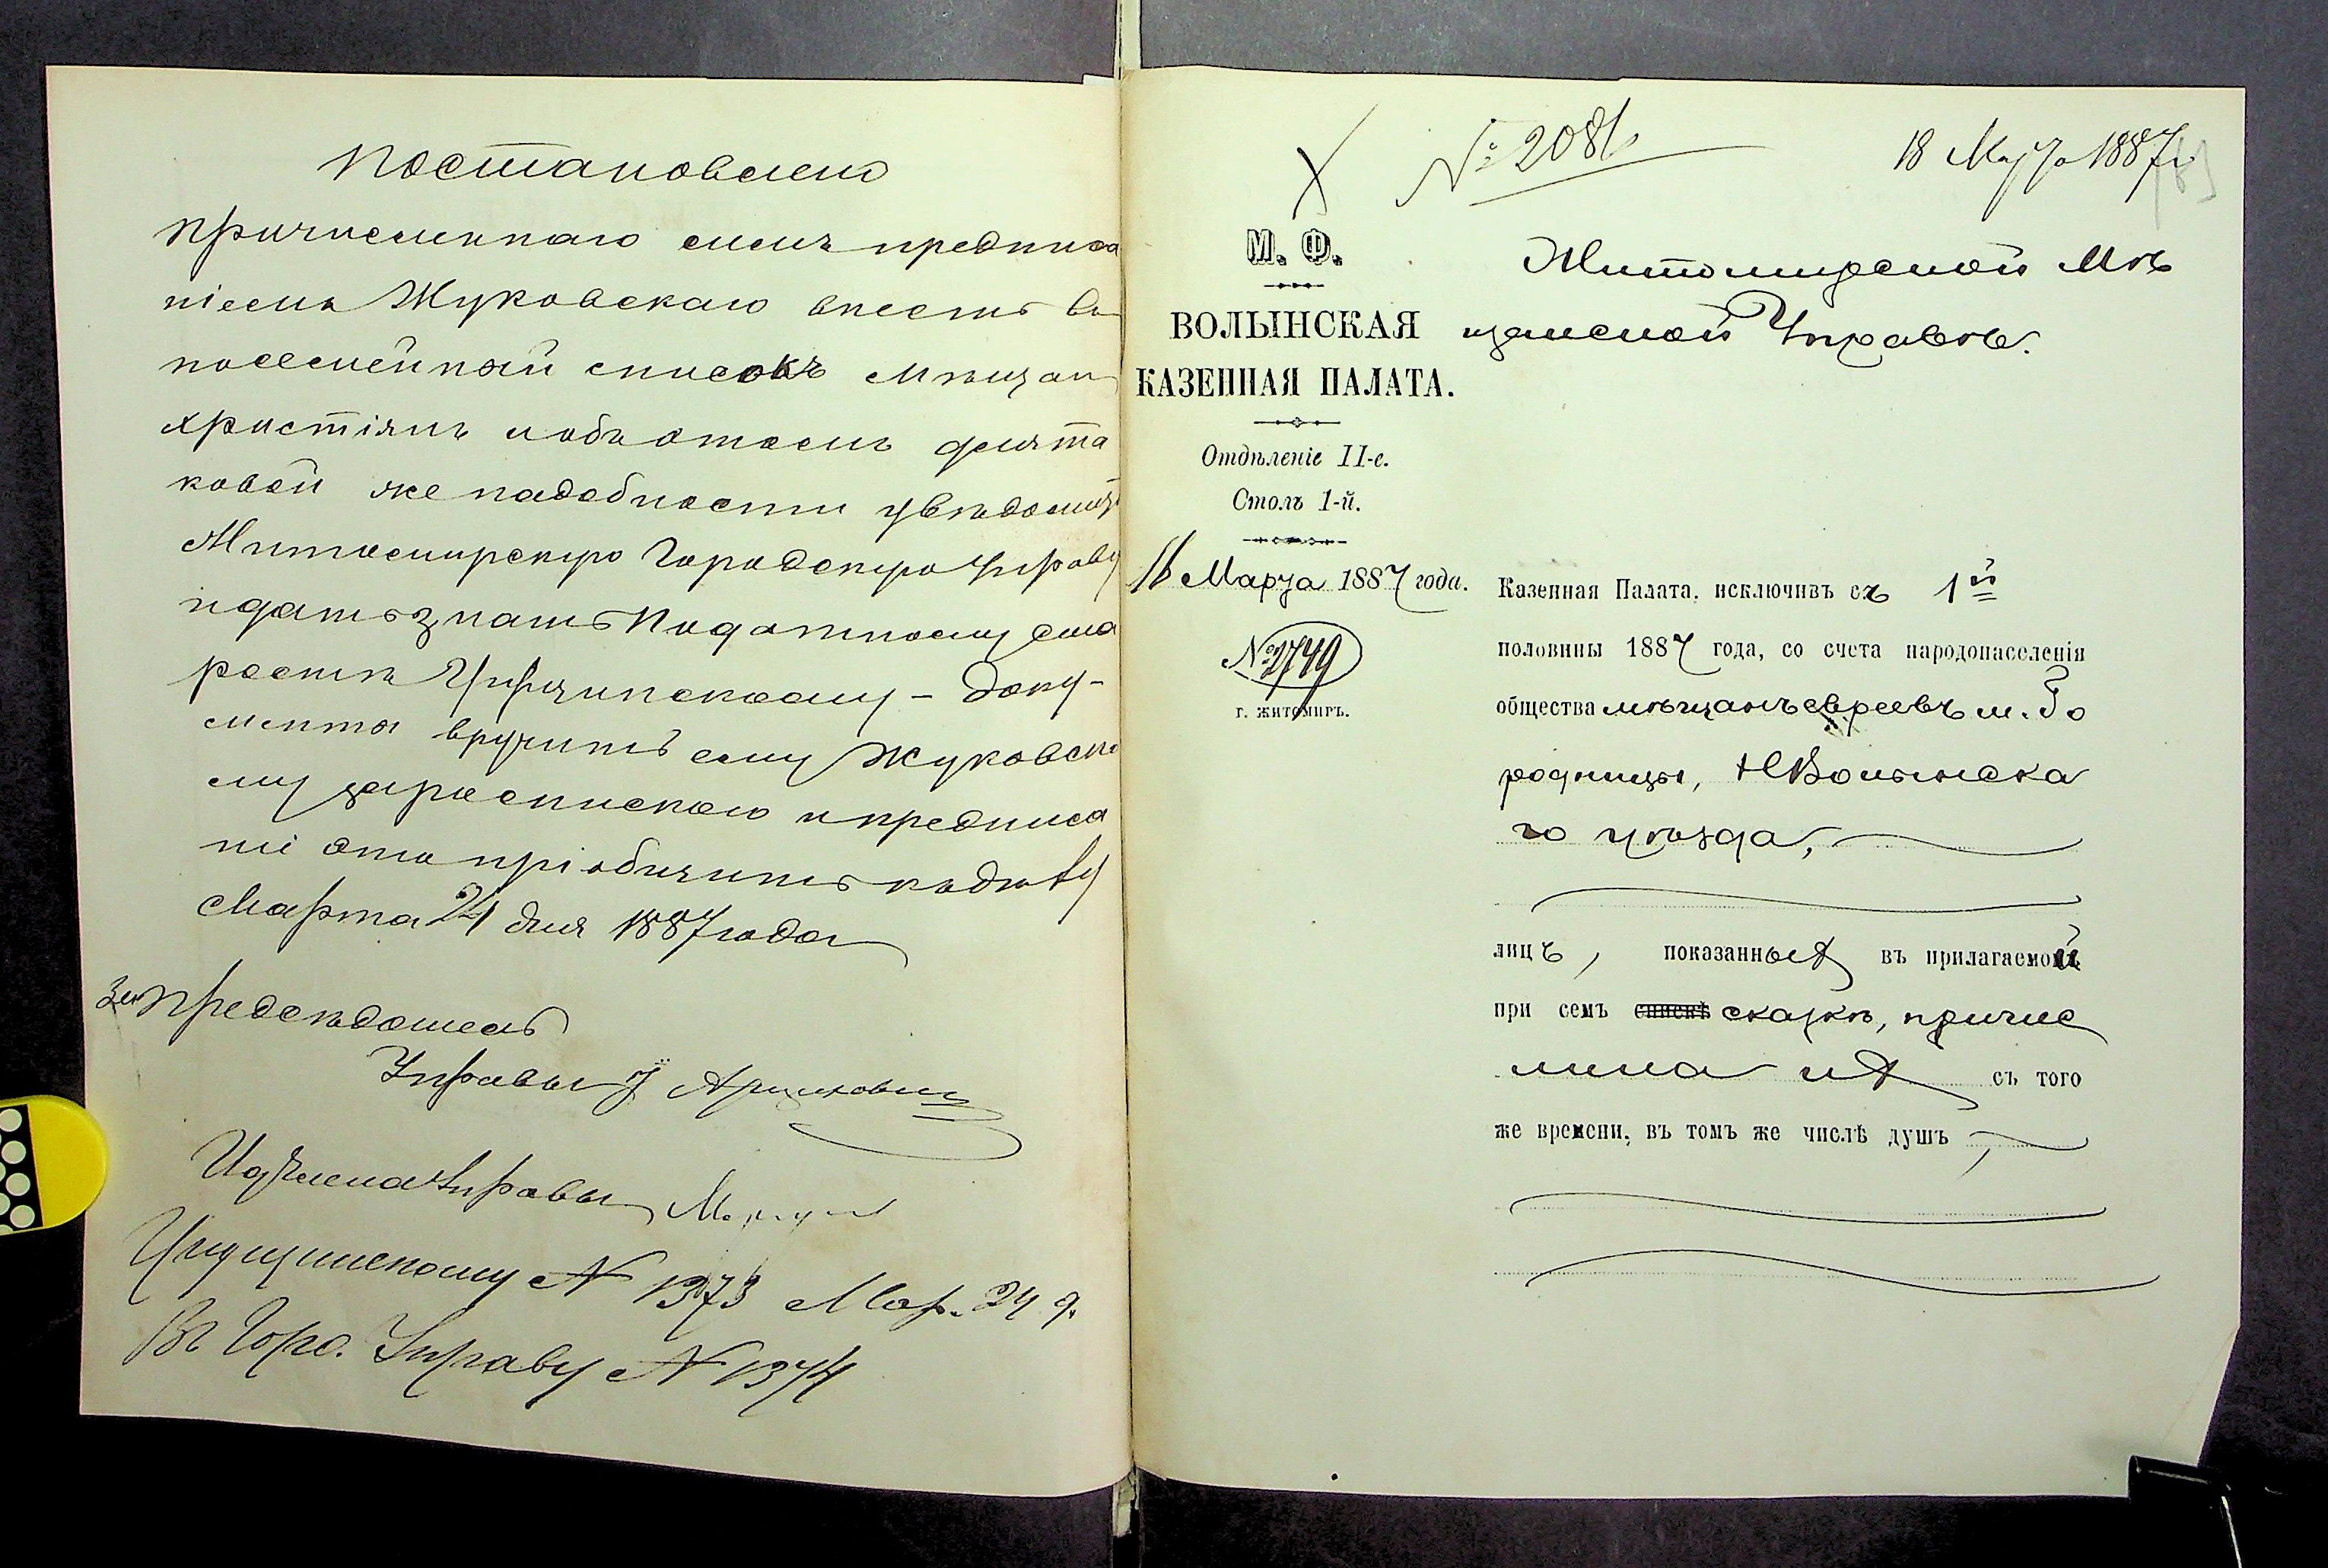 Постановлено
причисленнаго симъ предписа
ніемъ Жуковскаго внесть въ
посемейный списокъ мѣщан
христіянъ и объ отомъ для та
ковой же надобности увѣдомить
Житомирскую Городскую Управу
и дать знать Податному ста
ростѣ - Доку-
менты вручить ему Жуковско
му за роспискою и предписа
ніе ото пріобщить къ дѣлу
Марта 24 дня 1887 года
За Предсѣдатель
Управы
Члена Управы
№ 1373 Мар. 24 д.
Въ Горо. Управу № 1374
№ 2081
18 Марта 1887 г.
М. Ф.
ВОЛЫНСКАЯ
КАЗЕННАЯ ПАЛАТА.
Отдѣленіе II-е.
Столъ 1-й.
16 Марта 1887 года.
№ 2749
г. житомиръ.
Житомирской Мѣ
щанской Управѣ.
Казенная Палата, исключивъ съ 1й
половины 1887 года, со счета народонаселенія
общества мѣщанъ евреевъ м. Го
родницы, НВолынска
го уѣзда,
лицъ, показанныхъ въ прилагаемой
при семъ спискѣ сказкѣ, причис
лила ихъ съ того
же времени, въ томъ же числѣ душъ,